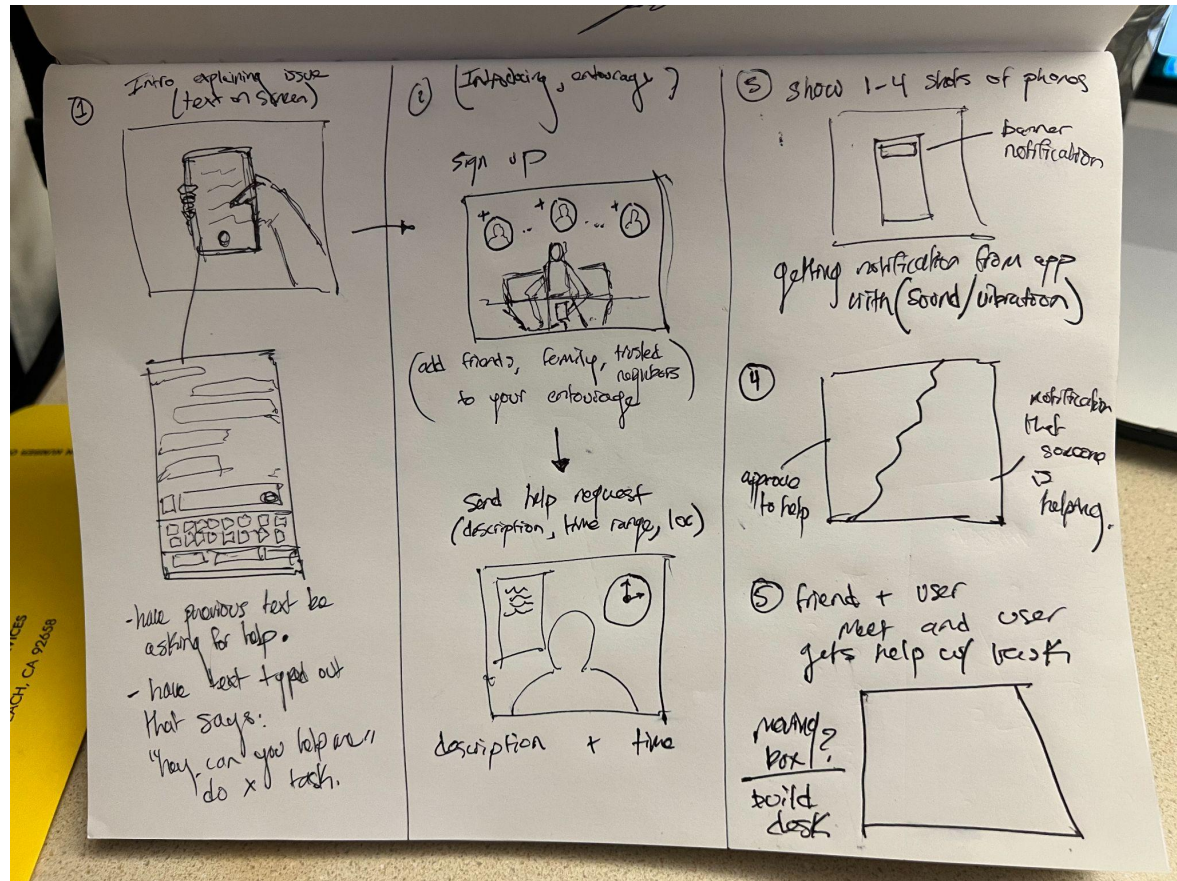 ①
Intro explaining issue
(text on screen)
- have previous text be
asking for help.
- have text typed out
that says:
"hey, can you help me
do x task."
②
(Introducing, entourage)
sign up
(add friends, family, trusted
neighbors
to your entourage)
send help request
(description, time range, loc)
description + time
③ show 1-4 shots of phones
banner
notification
getting notification from app
with (sound/vibration)
④
approve
to help
notification
that
someone
is
helping.
⑤ friend + user
meet and user
gets help w/ task
moving
box?
build
desk
VICES
ACH, CA 92658